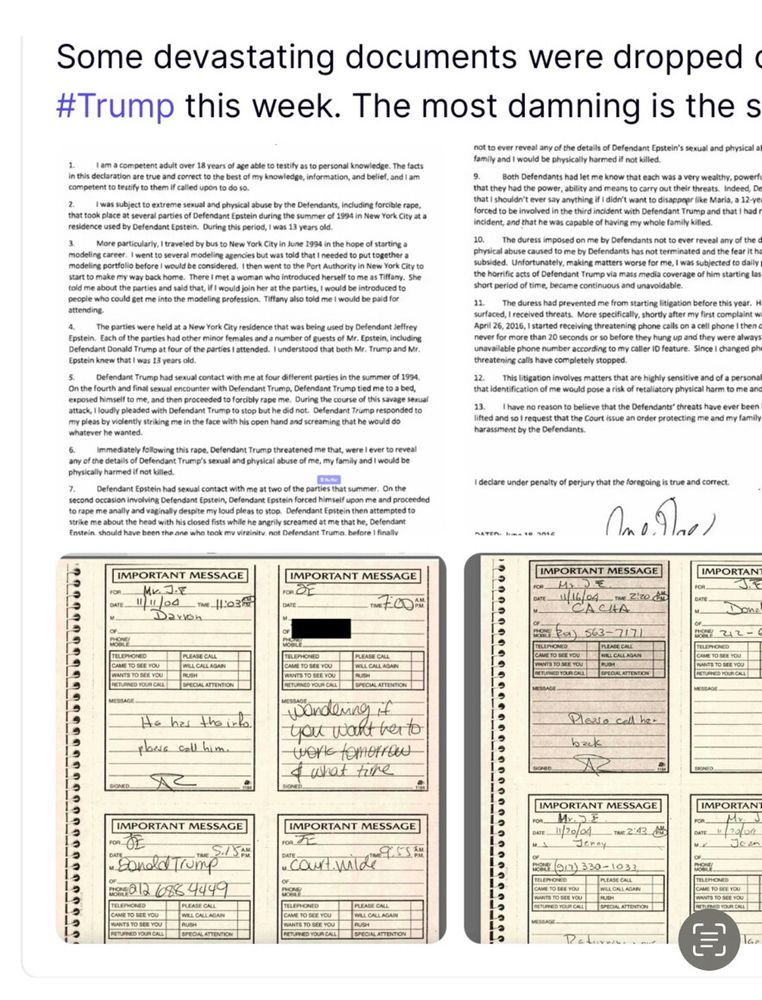 Some devastating documents were dropped
#Trump this week. The most damning is the
1. I am a competent adult over 18 years of age able to testify as to personal knowledge. The facts
in this declaration are true and correct to the best of my knowledge, information, and belief, and I am
competent to testify to them if called upon to do so.
2. I was subject to extreme sexual and physical abuse by the Defendants, including forcible rape,
that took place at several parties of Defendant Epstein during the summer of 1994 in New York City at a
residence used by Defendant Epstein. During this period, I was 13 years old.
3. More particularly, I traveled by bus to New York City in June 1994 in the hope of starting a
modeling career. I went to several modeling agencies but was told that I needed to put together a
modeling portfolio before I would be considered. I then went to the Port Authority in New York City to
start to make my way back home. There I met a woman who introduced herself to me as Tiffany. She
told me about the parties and said that, if I would join her at the parties, I would be introduced to
people who could get me into the modeling profession. Tiffany also told me I would be paid for
attending.
4. The parties were held at a New York City residence that was being used by Defendant Jeffrey
Epstein. Each of the parties had other minor females and a number of guests of Mr. Epstein, including
Defendant Donald Trump at four of the parties I attended. I understood that both Mr. Trump and Mr.
Epstein knew that I was 13 years old.
5. Defendant Trump had sexual contact with me at four different parties in the summer of 1994.
On the fourth and final sexual encounter with Defendant Trump, Defendant Trump tied me to a bed,
exposed himself to me, and then proceeded to forcibly rape me. During the course of this savage sexual
attack, I loudly pleaded with Defendant Trump to stop but he did not. Defendant Trump responded to
my pleas by violently striking me in the face with his open hand and screaming that he would do
whatever he wanted.
6. Immediately following this rape, Defendant Trump threatened me that, were I ever to reveal
any of the details of Defendant Trump's sexual and physical abuse of me, my family and I would be
physically harmed if not killed.
7. Defendant Epstein had sexual contact with me at two of the parties that summer. On the
second occasion involving Defendant Epstein, Defendant Epstein forced himself upon me and proceeded
to rape me anally and vaginally despite my loud pleas to stop. Defendant Epstein then attempted to
strike me about the head with his closed fists while he angrily screamed at me that he, Defendant
Epstein, should have been the one who took my virginity, not Defendant Trump, before I finally
not to ever reveal any of the details of Defendant Epstein's sexual and physical
family and I would be physically harmed if not killed.
9. Both Defendants had let me know that each was a very wealthy,
that they had the power, ability and means to carry out their threats. Indeed,
that I shouldn't ever say anything if I didn't want to disappear like Maria, a
forced to be involved in the third incident with Defendant Trump and that I had
incident, and that he was capable of having my whole family killed.
10. The duress imposed on me by Defendants not to ever reveal any of the
physical abuse caused to me by Defendants has not terminated and the fear it
subsided. Unfortunately, making matters worse for me, I was subjected to daily
the horrific acts of Defendant Trump via mass media coverage of him starting
short period of time, became continuous and unavoidable.
11. The duress had prevented me from starting litigation before this year.
surfaced, I received threats. More specifically, shortly after my first complaint
April 26, 2016, I started receiving threatening phone calls on a cell phone I then
never for more than 20 seconds or so before they hung up and they were always
unavailable phone number according to my caller ID feature. Since I changed
threatening calls have completely stopped.
12. This litigation involves matters that are highly sensitive and of a personal
that identification of me would pose a risk of retaliatory physical harm to me and
13. I have no reason to believe that the Defendants' threats have ever been
lifted and so I request that the Court issue an order protecting me and my family
harassment by the Defendants.
I declare under penalty of perjury that the foregoing is true and correct.
IMPORTANT MESSAGE
FOR Mr. J.E
DATE 11/11/04 TIME 11:03
M
OF
PHONE/
MOBILE
TELEPHONED PLEASE CALL
CAME TO SEE YOU WILL CALL AGAIN
WANTS TO SEE YOU RUSH
RETURNED YOUR CALL SPECIAL ATTENTION
MESSAGE
He has the info.
please call him.
SIGNED
IMPORTANT MESSAGE
FOR JE
DATE TIME 7:00 A.M. P.M.
M
OF
PHONE/
MOBILE
TELEPHONED PLEASE CALL
CAME TO SEE YOU WILL CALL AGAIN
WANTS TO SEE YOU RUSH
RETURNED YOUR CALL SPECIAL ATTENTION
MESSAGE
wondering if
you want her to
work tomorrow
& what time
SIGNED
IMPORTANT MESSAGE
FOR JE
DATE TIME 5:15 A.M. P.M.
M Donald Trump
OF
PHONE/
MOBILE 212 685 4449
TELEPHONED PLEASE CALL
CAME TO SEE YOU WILL CALL AGAIN
WANTS TO SEE YOU RUSH
RETURNED YOUR CALL SPECIAL ATTENTION
IMPORTANT MESSAGE
FOR JE
DATE TIME 9:55 A.M. P.M.
M
OF
PHONE/
MOBILE
TELEPHONED PLEASE CALL
CAME TO SEE YOU WILL CALL AGAIN
WANTS TO SEE YOU RUSH
RETURNED YOUR CALL SPECIAL ATTENTION
IMPORTANT MESSAGE
FOR Mr. J E
DATE 11/16/04 TIME 2:20
M CACHA
OF
PHONE/
MOBILE 563-7171
TELEPHONED PLEASE CALL
CAME TO SEE YOU WILL CALL AGAIN
WANTS TO SEE YOU RUSH
RETURNED YOUR CALL SPECIAL ATTENTION
MESSAGE
Please call her
back
SIGNED
IMPORTANT
FOR J.E
DATE
M
OF
PHONE/
MOBILE 212-
TELEPHONED
CAME TO SEE YOU
WANTS TO SEE YOU
RETURNED YOUR CALL
MESSAGE
SIGNED
IMPORTANT MESSAGE
FOR Mr. J E
DATE 11/20/04 TIME 2:43
M Jenny
OF
PHONE/
MOBILE (917) 330-1033
TELEPHONED PLEASE CALL
CAME TO SEE YOU WILL CALL AGAIN
WANTS TO SEE YOU RUSH
RETURNED YOUR CALL SPECIAL ATTENTION
MESSAGE
IMPORTANT
FOR Mr.
DATE
M
OF
PHONE/
MOBILE
TELEPHONED
CAME TO SEE YOU
WANTS TO SEE YOU
RETURNED YOUR CALL